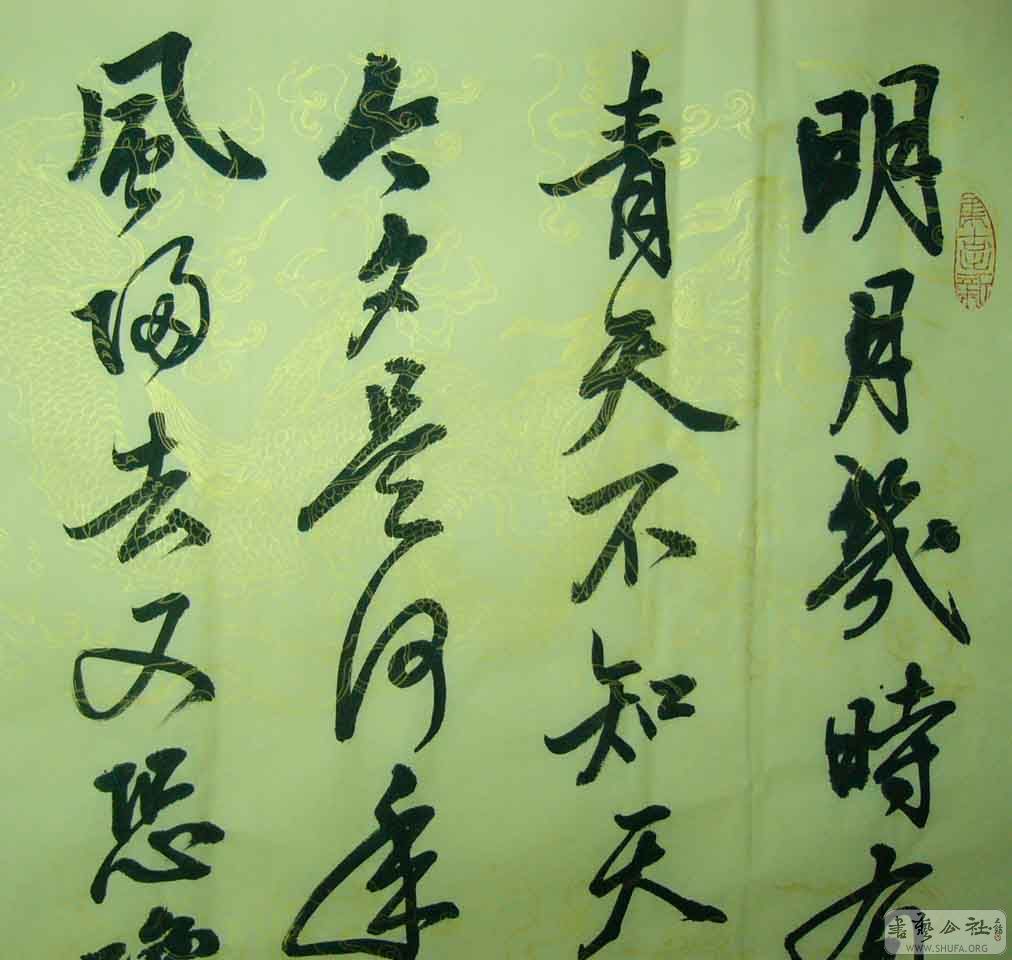 明月幾時有
青天不知天
今夕是何年
風歸去又恐瓊
書藝公社
WWW.SHUFA.ORG